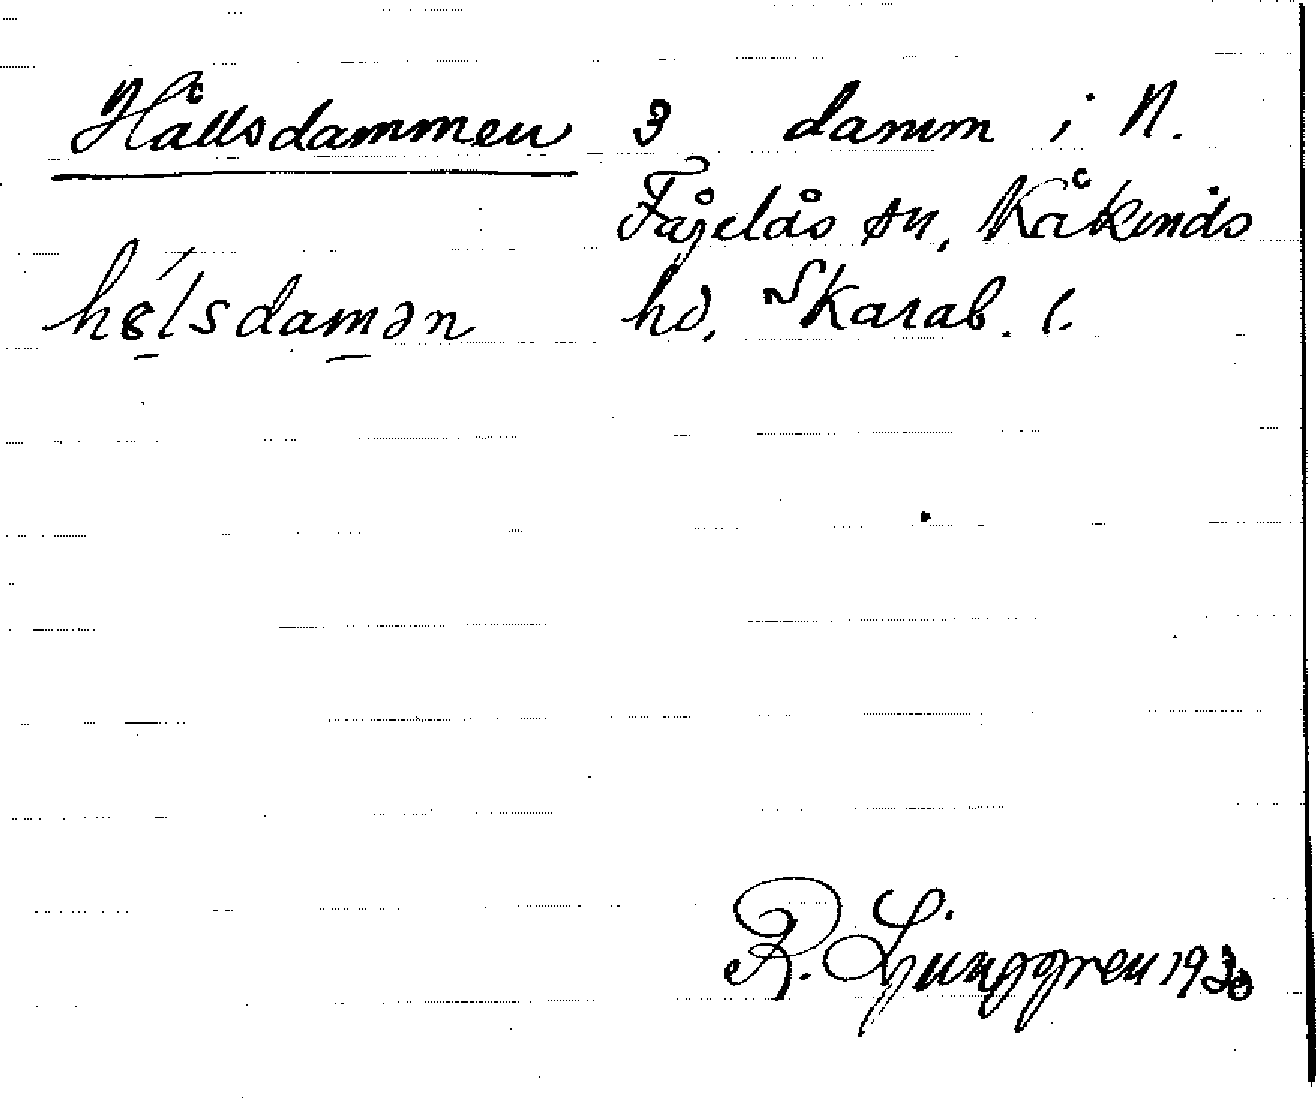 Hållsdammen 3 damm i N.
Fågelås sn, Kåkinds
hd, Skarab. l.
hɵlsdamən
R. Ljunggren 1930